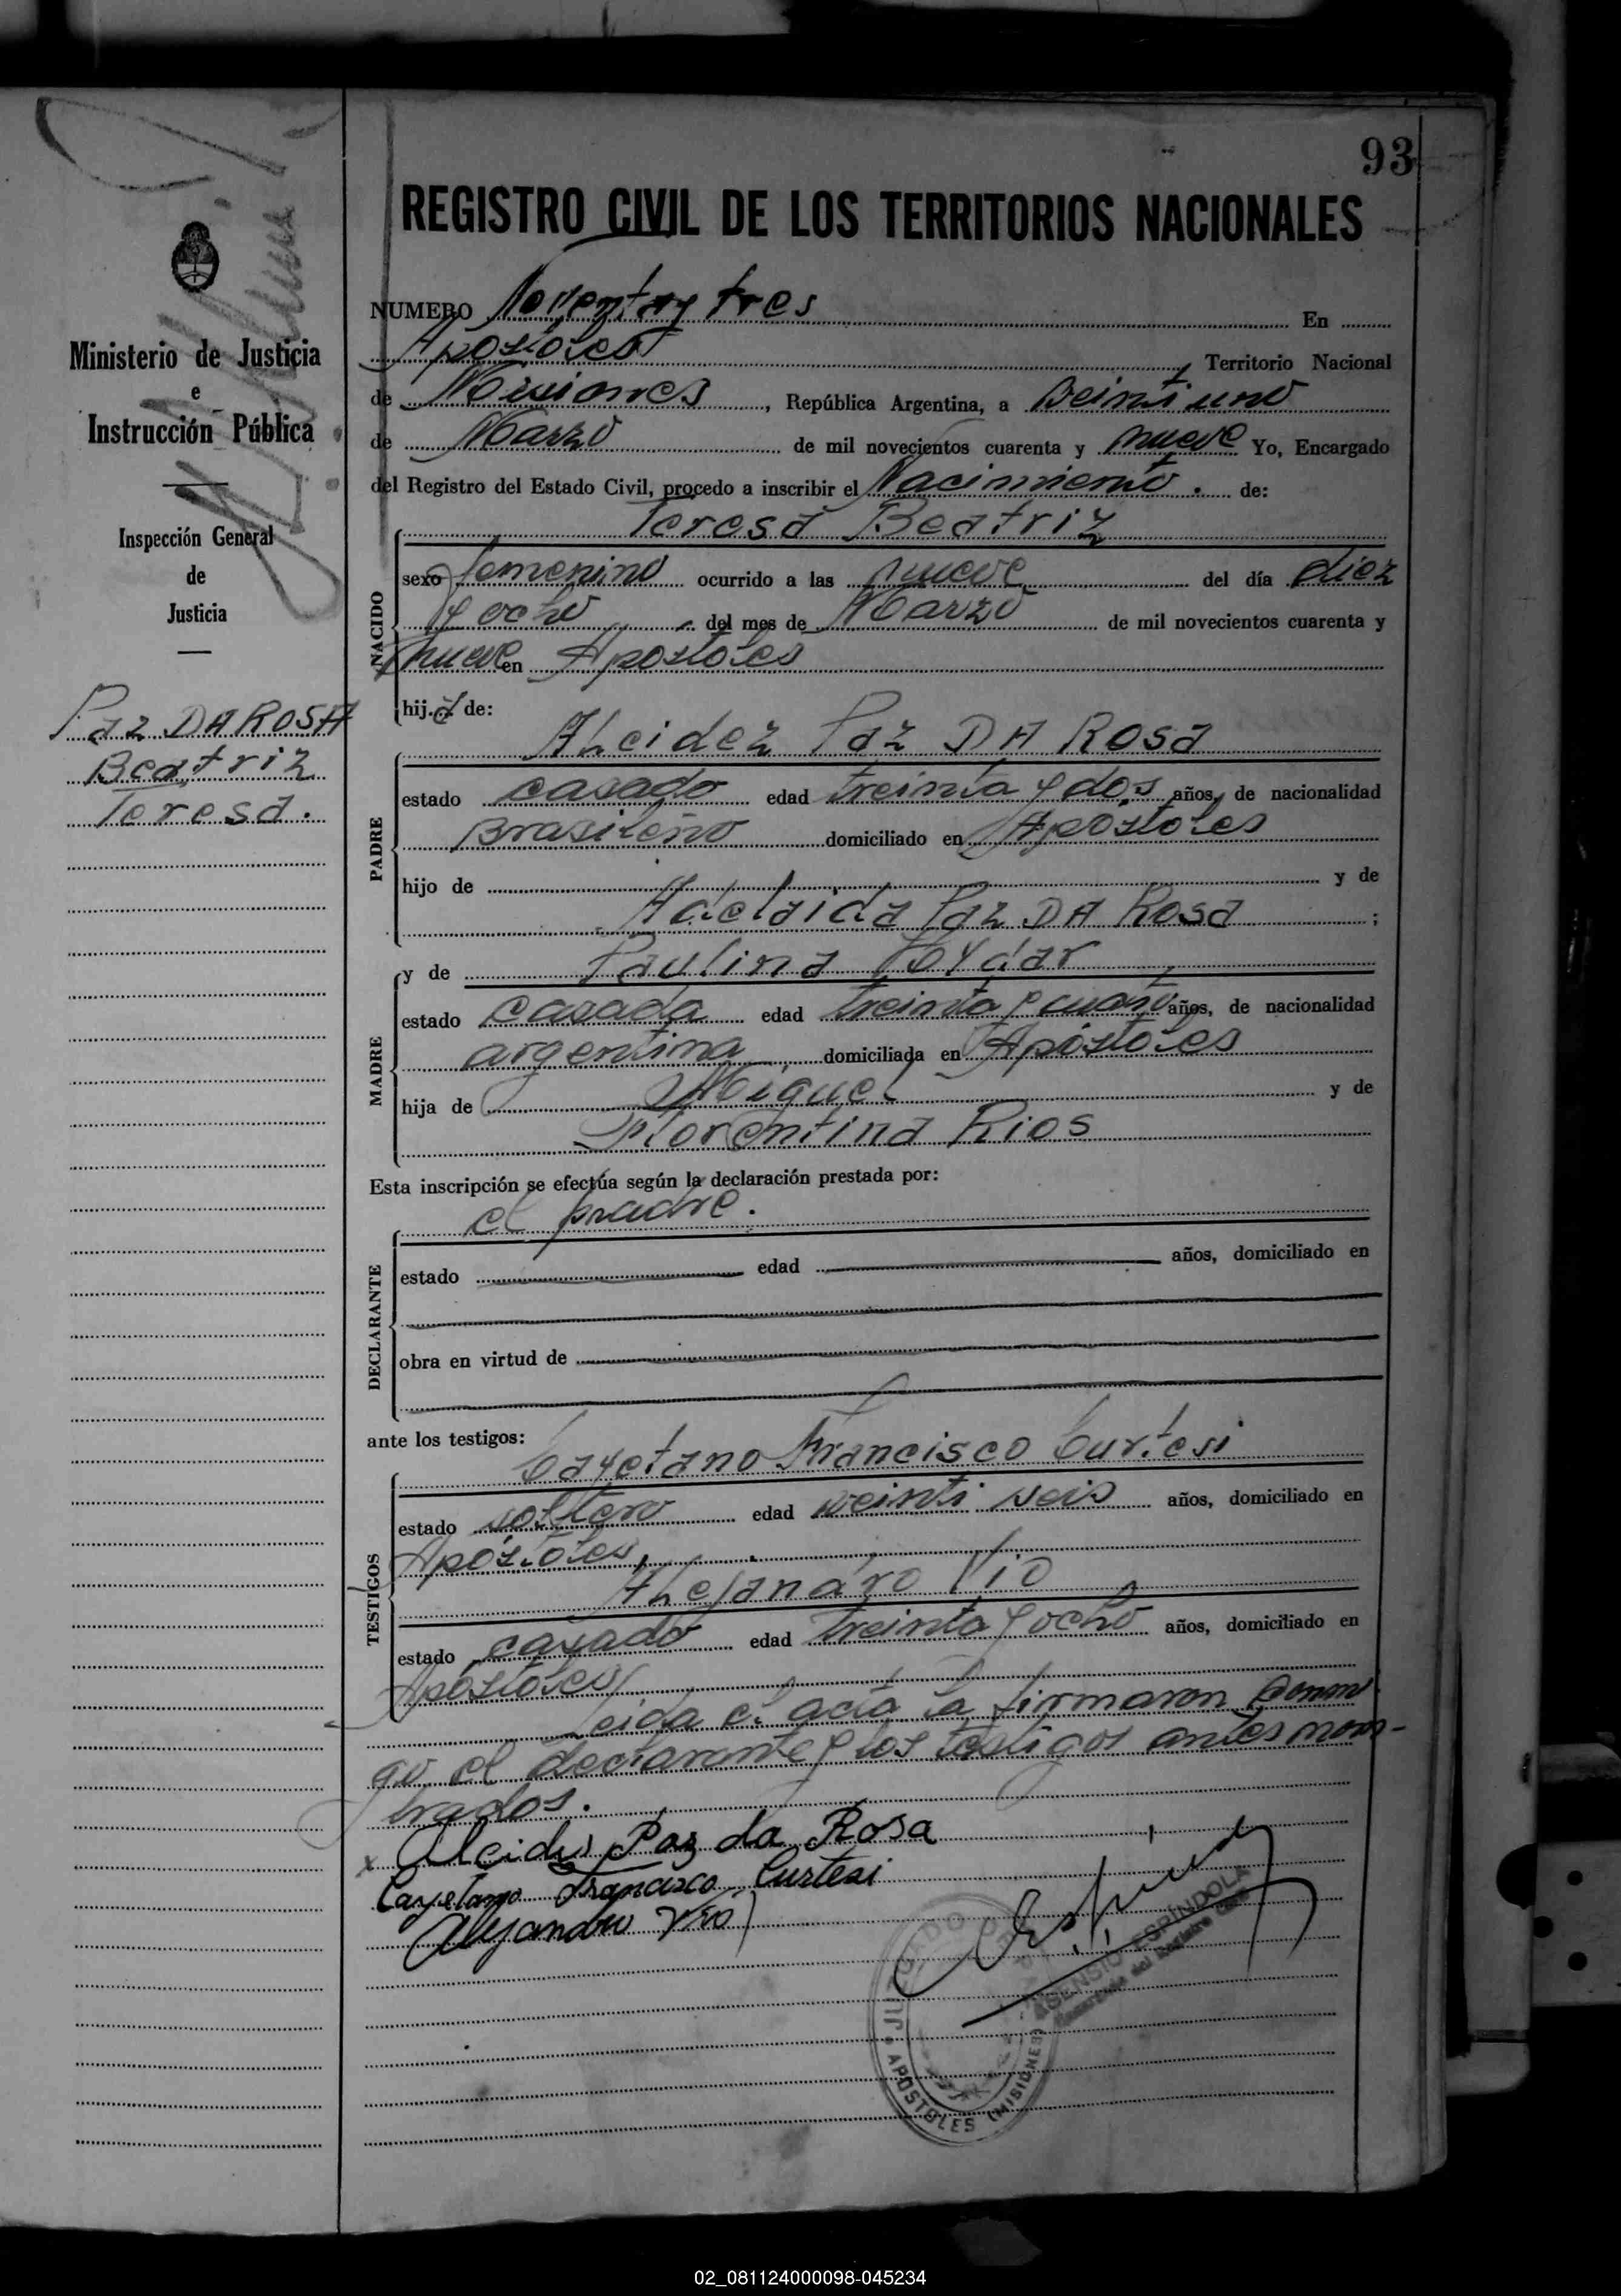 93
REGISTRO CIVIL DE LOS TERRITORIOS NACIONALES
Ministerio de Justicia
e
Instrucción Pública
Inspección General
de
Justicia
Paz DA ROSA
Beatriz
Teresa.
NUMERO Noventay tres En
Apóstoles Territorio Nacional
de Misiones, República Argentina, a Veintiuno
de Marzo de mil novecientos cuarenta y nueve Yo, Encargado
del Registro del Estado Civil, procedo a inscribir el Nacimiento. de:
Teresa Beatriz
NACIDO
sexo femenino ocurrido a las nueve del día diez
y ocho del mes de Marzo de mil novecientos cuarenta y
nueve en Apóstoles
hij.a de:
Alcidez Paz DA Rosa
PADRE
estado casado edad treinta y dos años, de nacionalidad
Brasileño domiciliado en Apóstoles
hijo de y de
Adelaida Paz DA Rosa ;
y de Paulina
MADRE
estado casada edad treinta y cuatro años, de nacionalidad
argentina domiciliada en Apóstoles
hija de Miguel y de
Florentina Rios
Esta inscripción se efectúa según la declaración prestada por:
el padre.
DECLARANTE
estado edad años, domiciliado en
obra en virtud de
ante los testigos:
Cayetano Francisco Curtesi
TESTIGOS
estado soltero edad veinti seis años, domiciliado en
Apóstoles,
Alejandro Vio
estado casado edad treinta y ocho años, domiciliado en
Apóstoles
Leida el acta la firmaron conmi
go el declarante y los testigos antes nom-
brados.
x Alcides Paz da Rosa
Cayetano Francisco Curtesi
Alejandro Vio
ASENSIO ESPINDOLA
Encargado del Registro Civil
APOSTOLES (MISIONES)
02_081124000098-045234